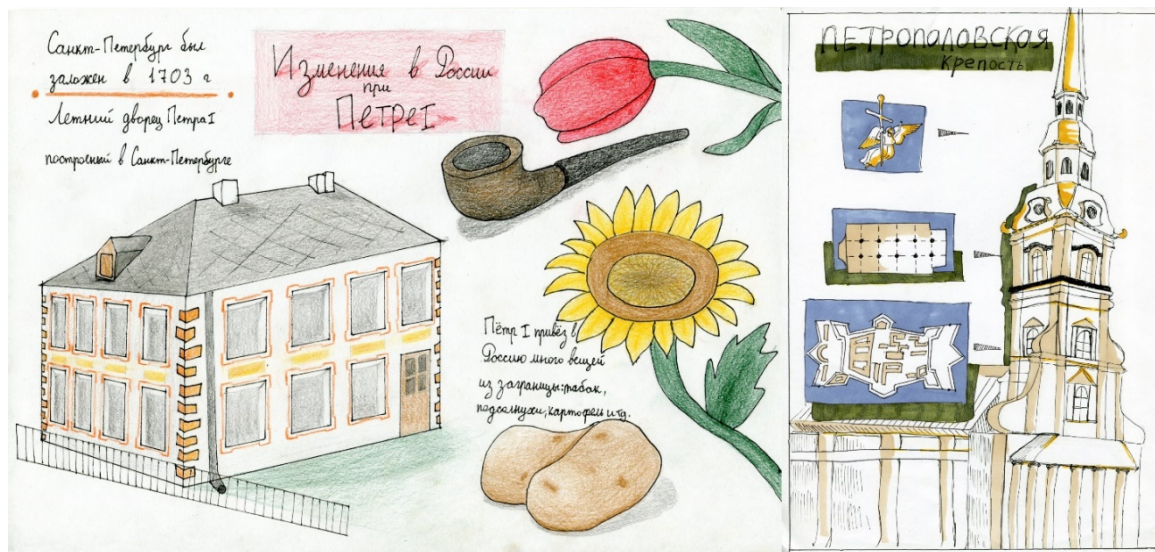 Санкт-Петербург был
заложен в 1703 г
Летний дворец Петра I
построеный в Санкт-Петербурге
Изменения в России
при
Петре I
Пётр I привёз в
Россию много вещей
из заграницы: табак,
подсолнухи, картофель и тд.
ПЕТРОПАЛОВСКАЯ
крепость